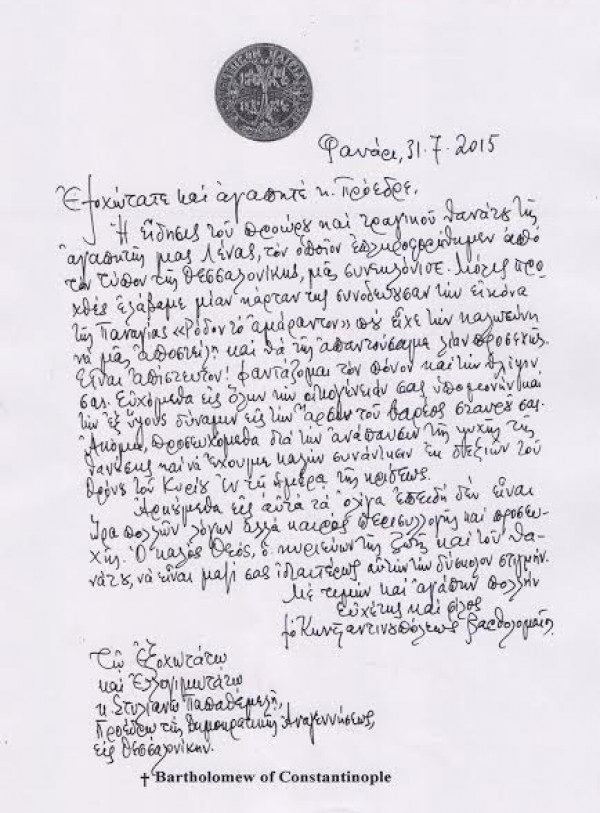 Φανάρι, 31.7.2015
Ἐξοχώτατε καί ἀγαπητέ κ. Πρόεδρε,
Ἡ εἴδησις τοῦ προώρου καί τραγικοῦ θανάτου τῆς
ἀγαπητῆς μας Λένας, τόν ὁποῖον ἐπληροφορήθημεν ἀπό
τόν τύπον τῆς Θεσσαλονίκης, μᾶς συνεκλόνισε. Μόλις προ-
χθές ἐλάβαμε μίαν κάρταν της συνοδεύουσαν τήν εἰκόνα
τῆς Παναγίας «Ρόδον τό ἀμάραντον» πού εἶχε τήν καλωσύνη
νά μᾶς ἀποστείλῃ καί θά τῆς ἀπαντούσαμε λίαν προσεχῶς.
Εἶναι ἀπίστευτον! Φαντάζομαι τόν πόνον καί τήν θλῖψιν
σας. Εὐχόμεθα εἰς ὅλην τήν οἰκογένειάν σας ὑπομονήν καί
τήν ἐξ ὕψους δύναμιν εἰς τήν ἄρσιν τοῦ βαρέος σταυροῦ σας.
Ἀκόμα, προσευχόμεθα διά τήν ἀνάπαυσιν τῆς ψυχῆς τῆς
θανούσης καί νά ἔχουμε καλήν συνάντησιν ἐκ δεξιῶν τοῦ
θρόνου τοῦ Κυρίου ἐν τῇ ἡμέρᾳ τῆς κρίσεως.
Ἀρκούμεθα εἰς αὐτά τά ὀλίγα ἐπειδή δέν εἶναι
ὥρα πολλῶν λόγων ἀλλά καιρός περισυλλογῆς καί προσευ-
χῆς. Ὁ καλός Θεός, ὁ κυριεύων τῆς ζωῆς καί τοῦ θα-
νάτου, νά εἶναι μαζί σας ἰδιαιτέρως αὐτήν τήν δύσκολον στιγμήν.
Μέ τιμήν καί ἀγάπην πολλήν
Εὐχέτης καί φίλος
† ὁ Κωνσταντινουπόλεως Βαρθολομαῖος
Τῷ Ἐξοχωτάτῳ
καί Ἐλλογιμωτάτῳ
κ. Στυλιανῷ Παπαθεμελῆ,
Προέδρῳ τῆς Δημοκρατικῆς Ἀναγεννήσεως,
εἰς Θεσσαλονίκην.
† Bartholomew of Constantinople